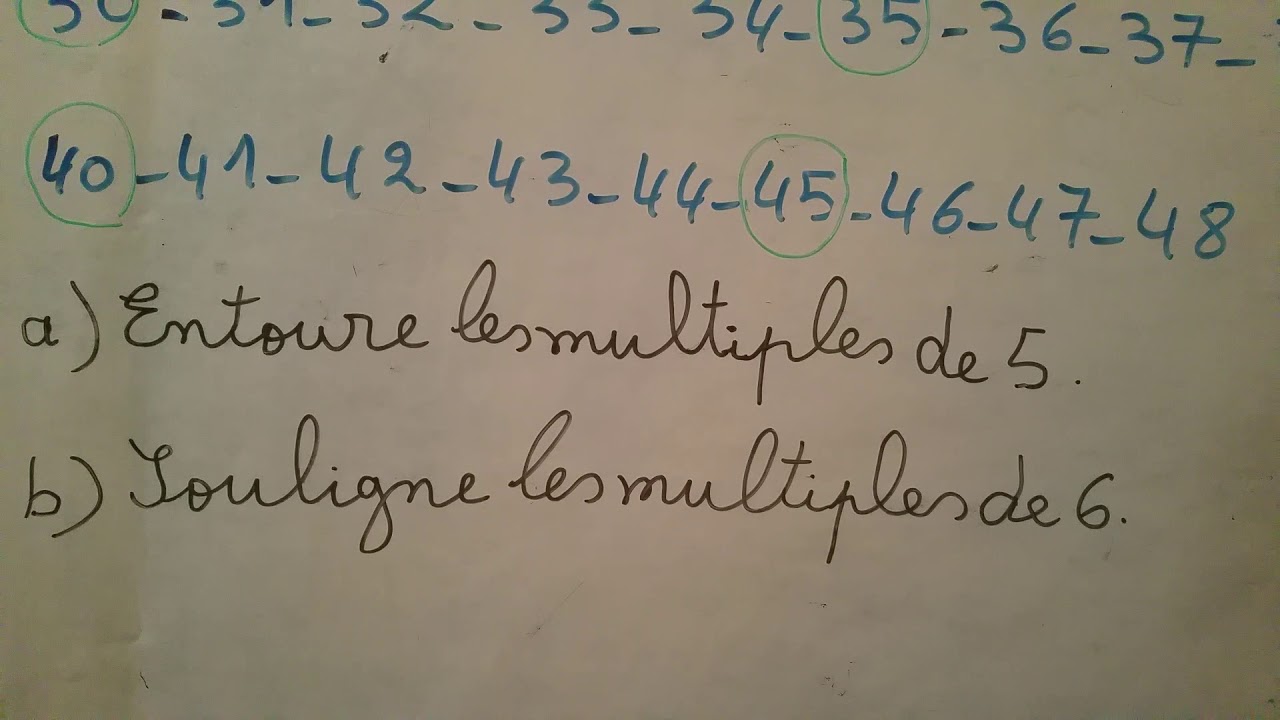 30 - 31 - 32 - 33 - 34 - 35 - 36 - 37 -
40 - 41 - 42 - 43 - 44 - 45 - 46 - 47 - 48
a) Entoure les multiples de 5.
b) Souligne les multiples de 6.